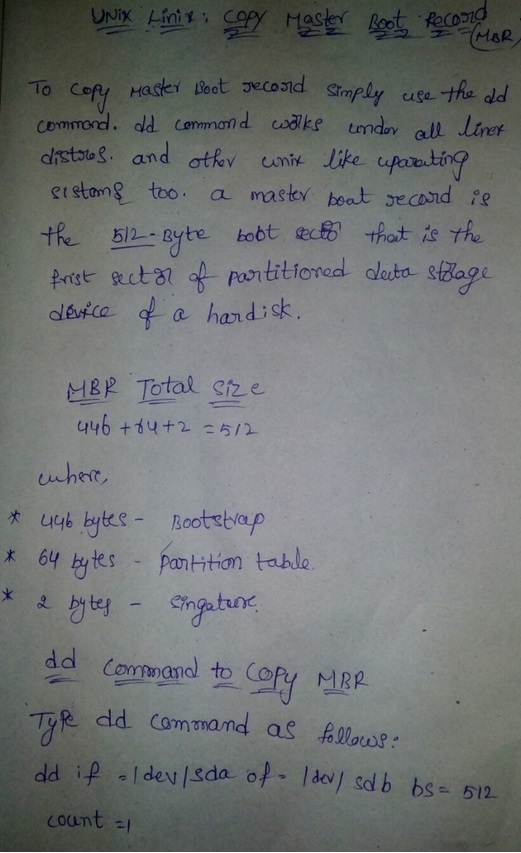 Unix Linix: Copy Master Boot Record
(MBR)
To Copy Master Boot record simply use the dd
command. dd commond works under all linex
distros. and other unix like uparating
sistams too. a master boat record is
the 512-Byte bobt secto that is the
frist sector of partitioned data storage
device of a hardisk.
MBR Total size
446 +64+2 =512
where,
* 446 bytes - Bootstrap
* 64 bytes - Partition table.
* 2 bytes - singature.
dd command to copy MBR
Type dd command as follows:
dd if =/dev/sda of= /dev/ sdb bs= 512
count =1